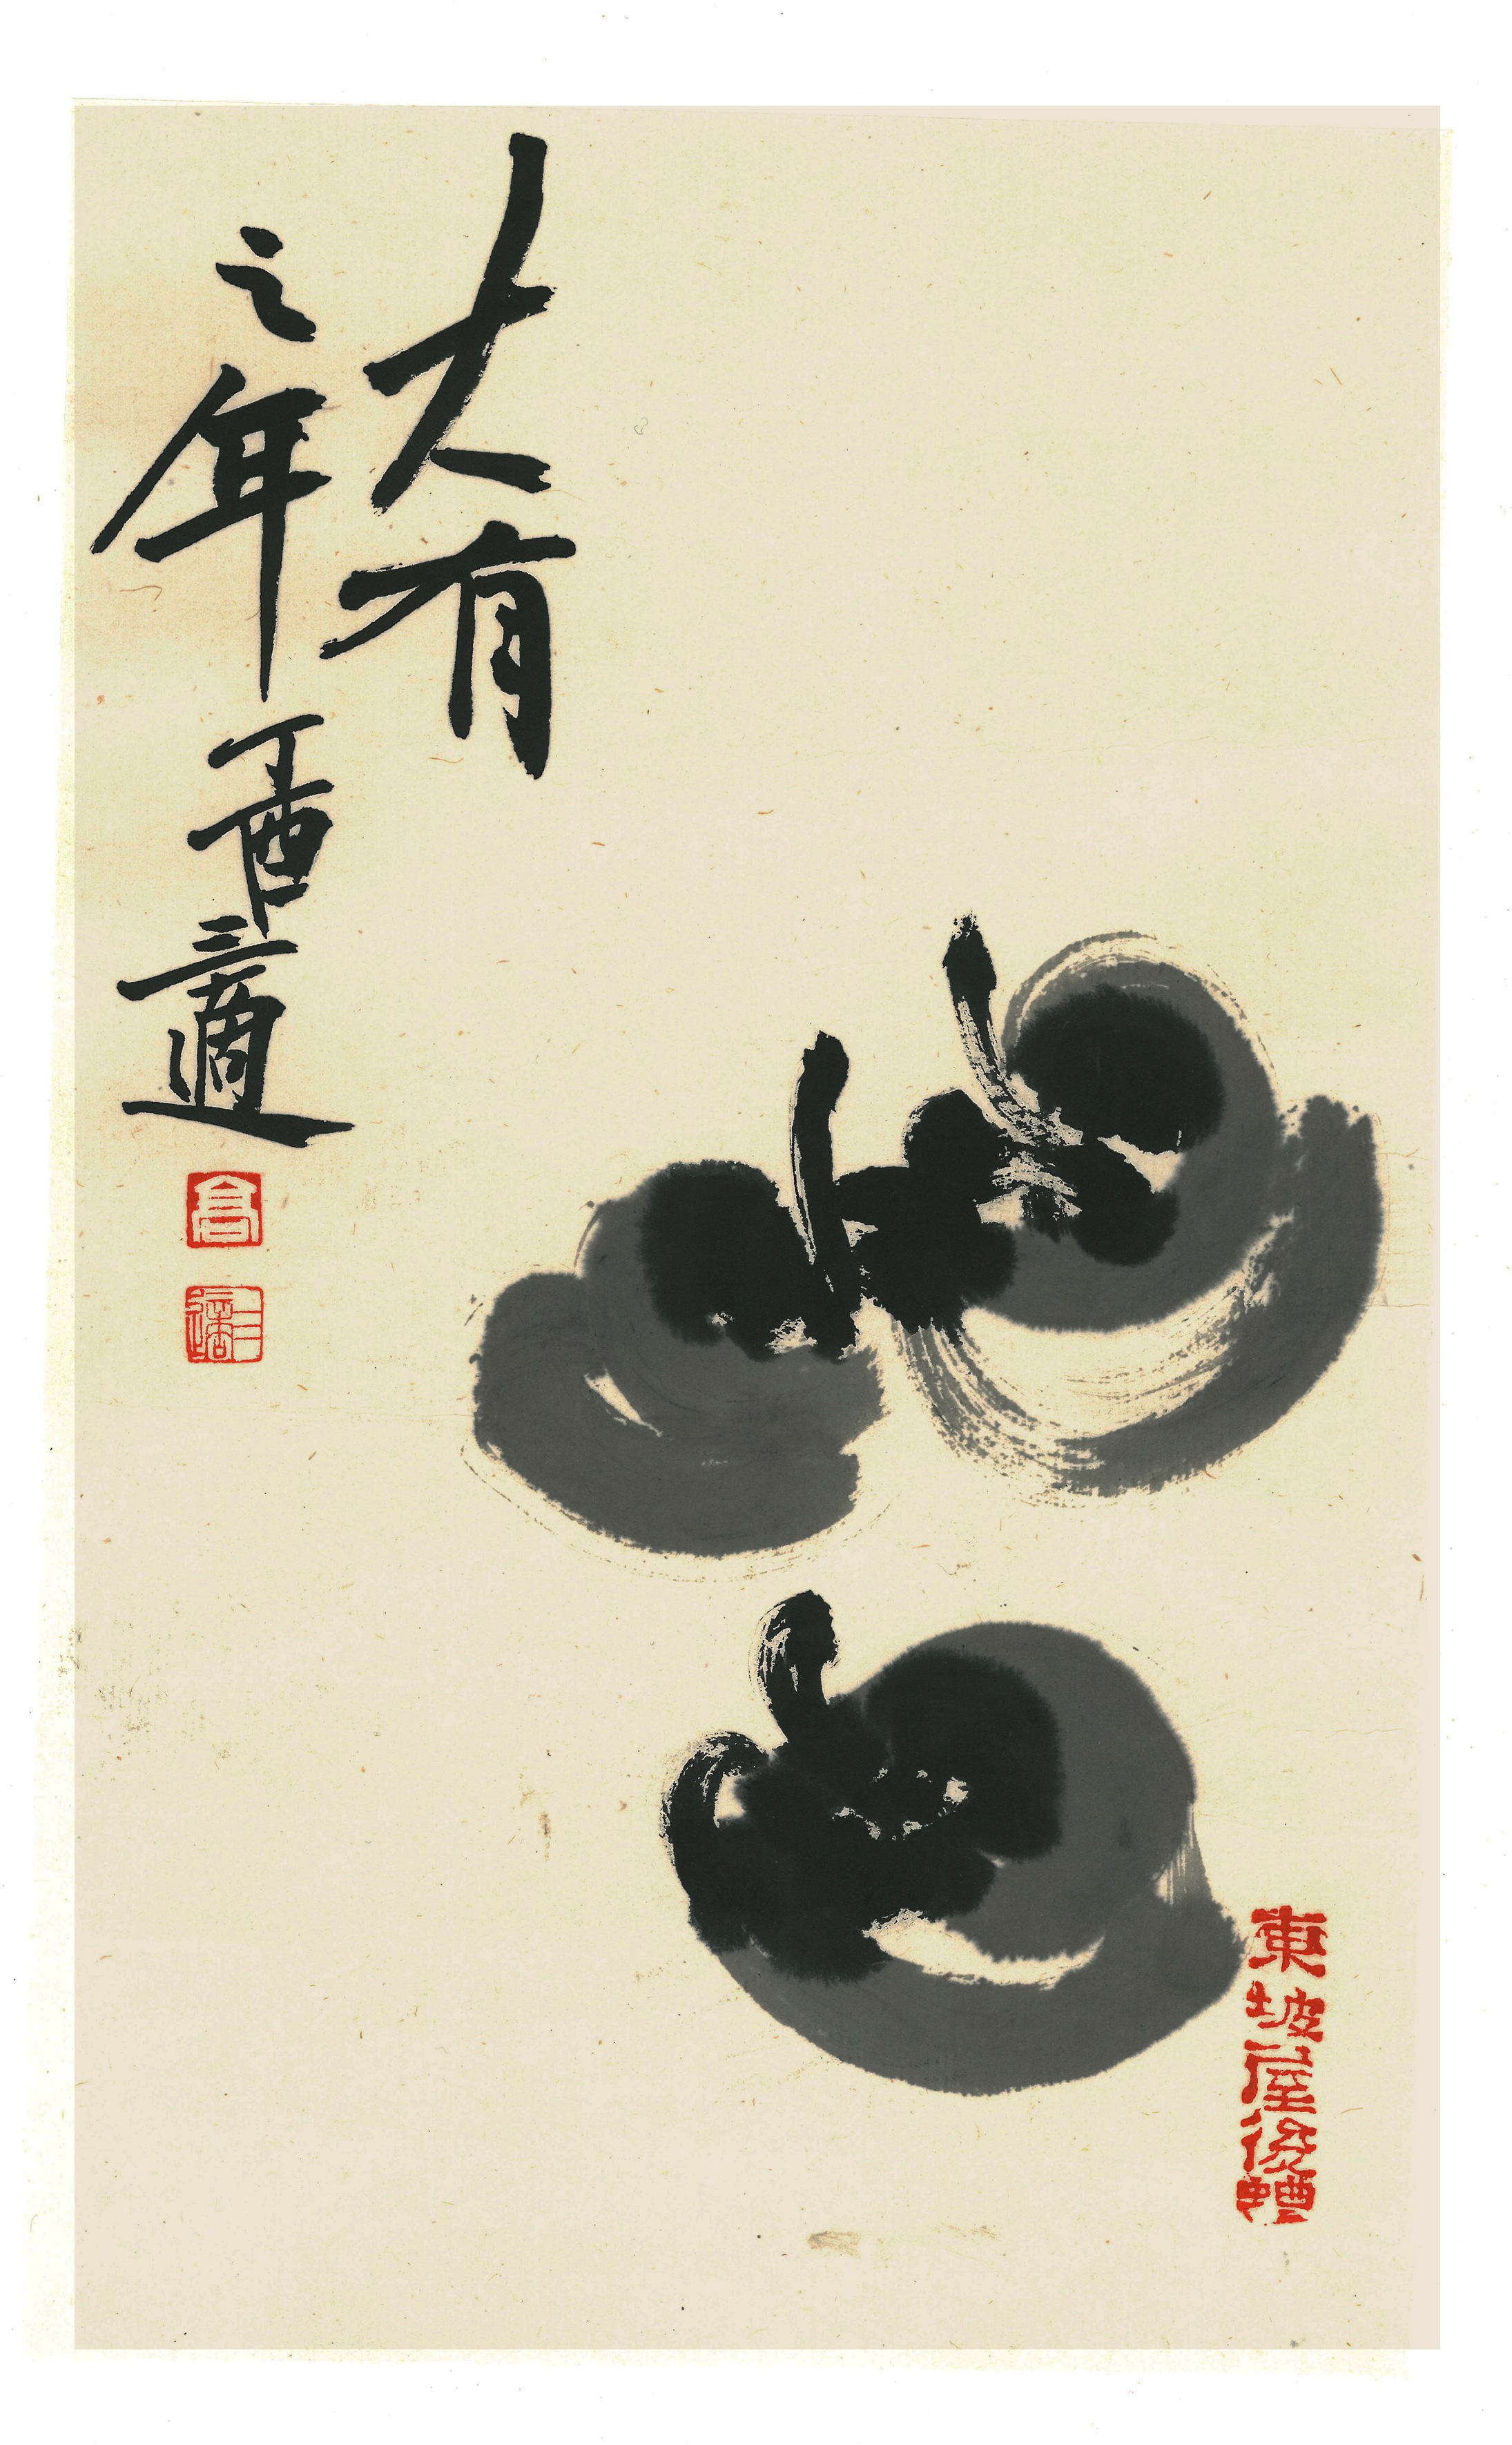 大有
之年 丁酉 三適
高
三適
東坡屋後